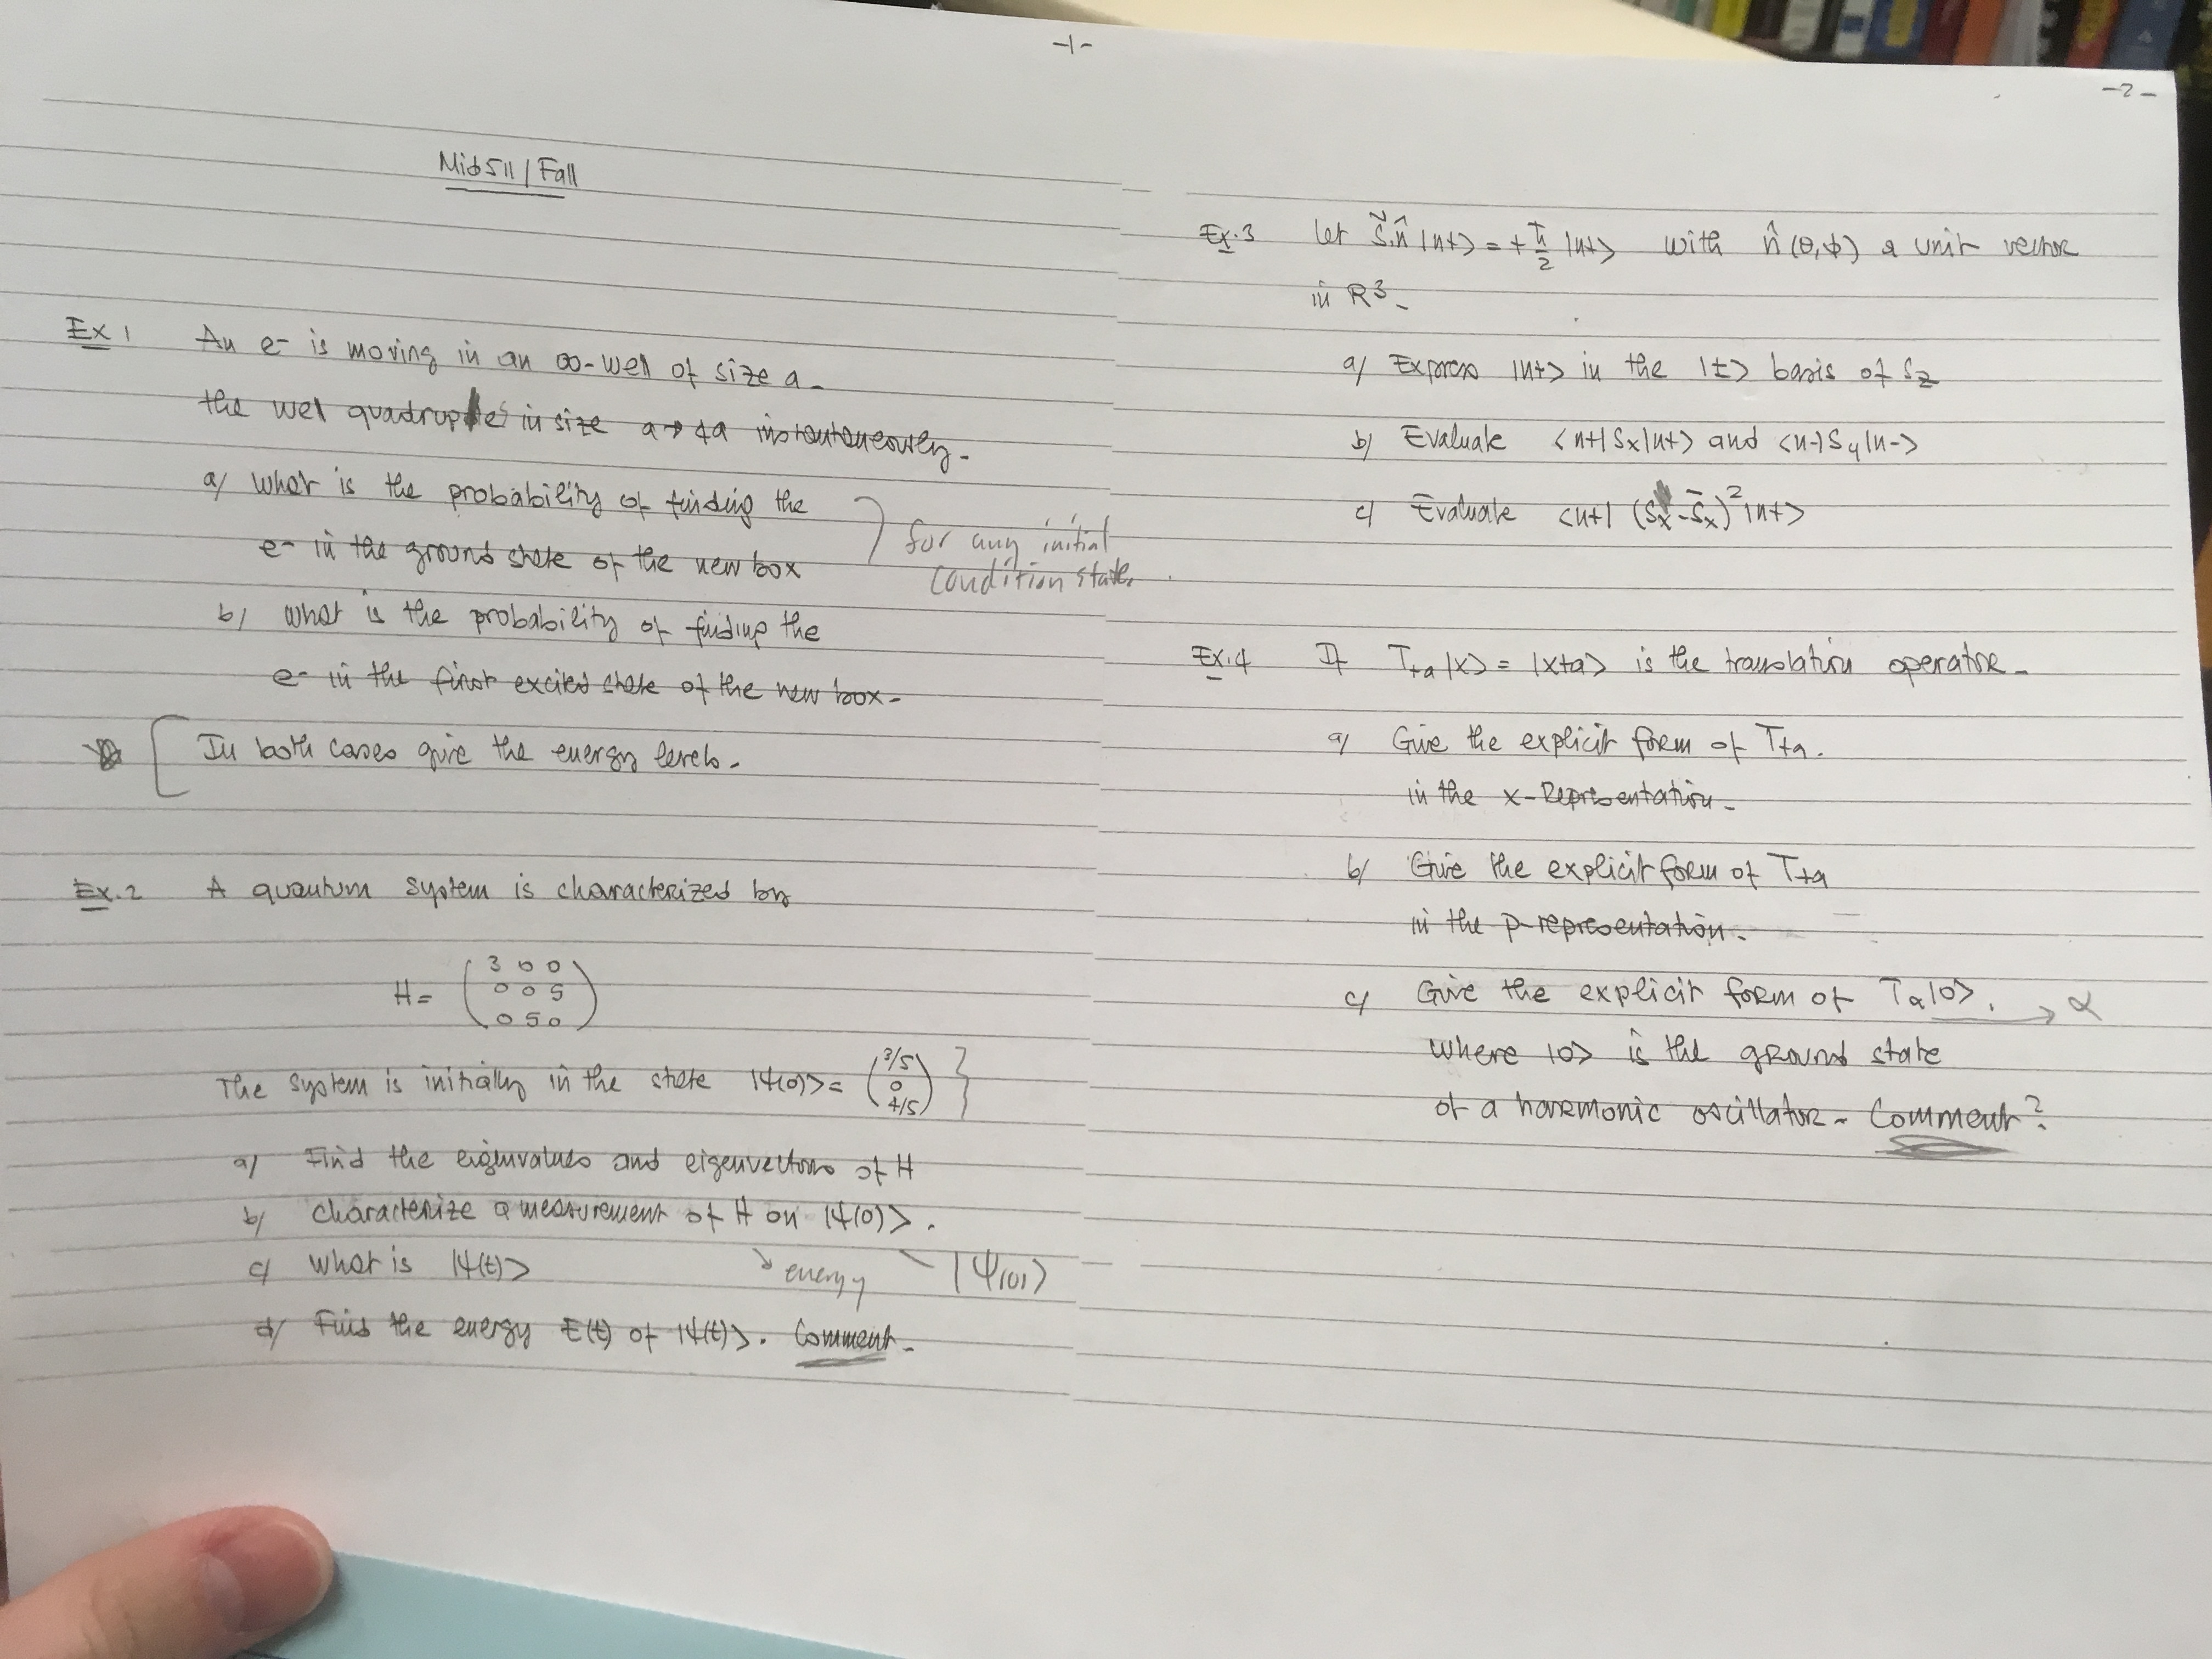 -1-
Mid 511 / Fall
Ex 1 An e- is moving in an ∞-well of size a-
the well quadruples in size a→4a instantaneously-
a/ what is the probability of finding the
e- in the ground state of the new box
for any initial
condition state.
b/ what is the probability of finding the
e- in the first excited state of the new box-
In both cases give the energy levels-
Ex.2 A quantum system is characterized by
H = (3 0 0
0 0 5
0 5 0)
The system is initially in the state |Ψ(0)> = (3/5
0
4/5)
a/ Find the eigenvalues and eigenvectors of H
b/ characterize a measurement of H on |Ψ(0)>.
energy |Ψ(0)>
c/ what is |Ψ(t)>
d/ Find the energy E(t) of |Ψ(t)>. Comment-
-2-
Ex.3 let S⃗.n̂ |n+> = + ħ/2 |n+> with n̂(θ,φ) a unit vector
in R³-
a/ Express |n+> in the |±> basis of Sz
b/ Evaluate <n+|Sx|n+> and <n-|Sy|n->
c/ Evaluate <n+| (Sx - S̄x)² |n+>
Ex.4 If T+a |x> = |x+a> is the translation operator-
a/ Give the explicit form of T+a.
in the x-Representation-
b/ Give the explicit form of T+a
in the p-representation-
c/ Give the explicit form of Ta|0>. → α
where |0> is the ground state
of a harmonic oscillator- Comment?